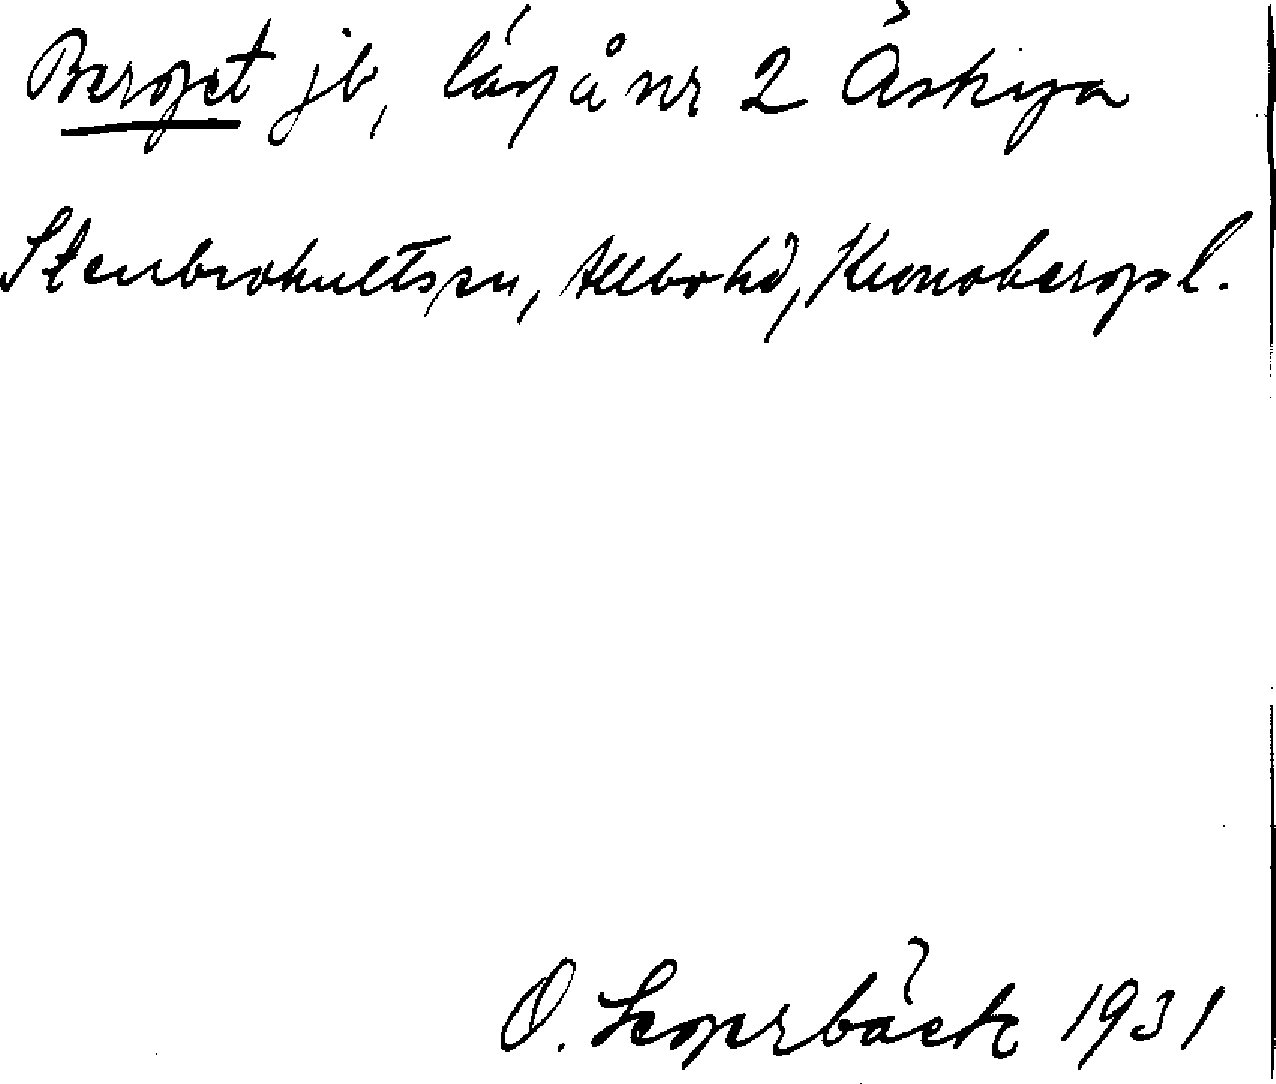 Berget jb, låg å nr 2 Åskya
Stenbrohults sn, Allbo hd, Kronobergs l.
O. Lagerbäck 1931